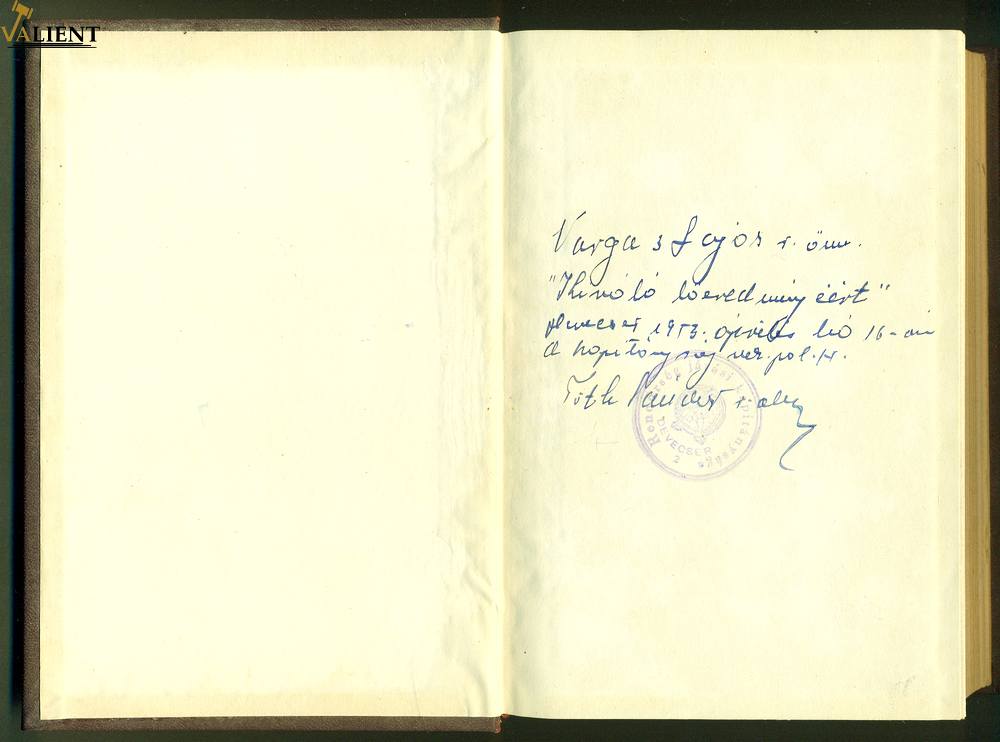 VALIENT
Varga 3 Lajos r. őrm.
"Kiváló lőeredményéért"
Devecser 1953. április hó 16-án
A kapitányság vez. pol. h.
Tóth Sándor r. alhgy
Rendőrség Járási Kapitánysága
DEVECSER
2